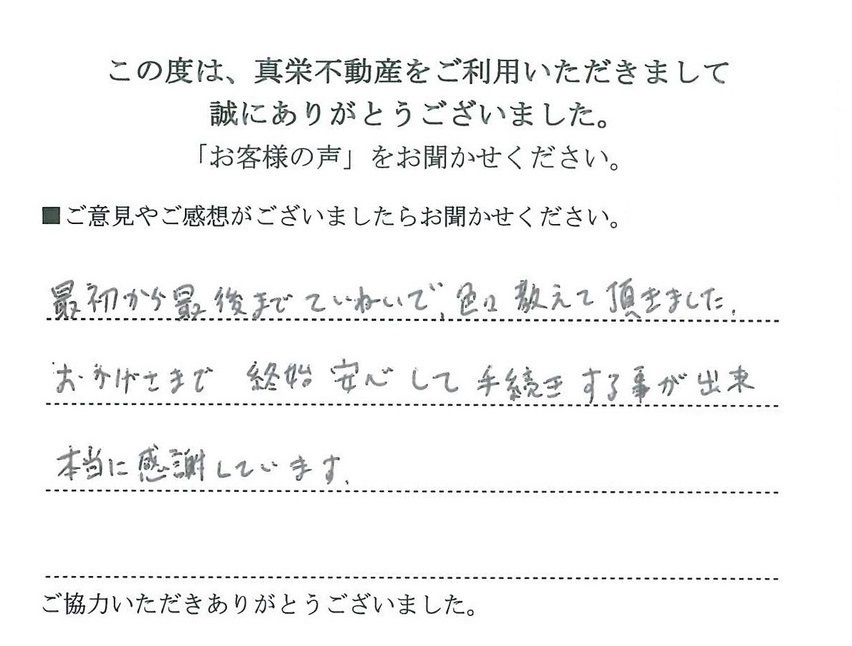 この度は、真栄不動産をご利用いただきまして
誠にありがとうございました。
「お客様の声」をお聞かせください。
■ご意見やご感想がございましたらお聞かせください。
最初から最後までていねいで、色々教えて頂きました。
おかげさまで 終始 安心して 手続きする事が出来
本当に感謝しています。
ご協力いただきありがとうございました。